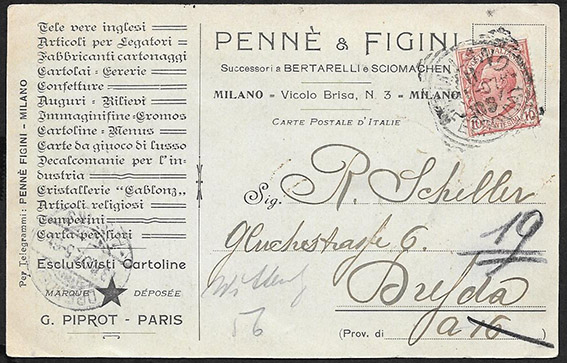 Per Telegrammi: PENNÈ FIGINI - MILANO
Tele vere inglesi
Articoli per Legatori
Fabbricanti cartonaggi
Cartolai-Cererie
Confetture
Auguri - Rilievi
Immaginifine-Cromos
Cartoline-Menus
Carte da giuoco di lusso
Decalcomanie per l'in-
dustria
Cristallerie "Gablonz„
Articoli religiosi
Temperini
Carta per fiori
Esclusivisti Cartoline
MARQUE DÉPOSÉE
G. PIPROT - PARIS
PENNÈ & FIGINI
Successori a BERTARELLI e SCIOMACHEN
MILANO - Vicolo Brisa, N. 3 - MILANO
CARTE POSTALE D'ITALIE
Sig. R. Scheller
Gluckstrasse 6.
19
Dresda
56
(Prov. di a 16
10